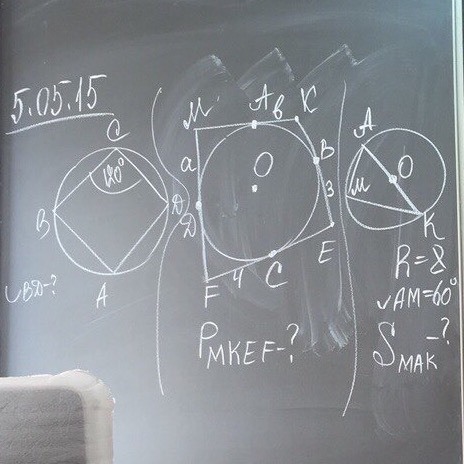 5.05.15
C
120°
B
D
A
◡BD-?
M
A
в
K
a
O
B
3
D
E
F
4
C
P MKEF-?
A
O
M
K
R=8
◡AM=60°
S MAK -?